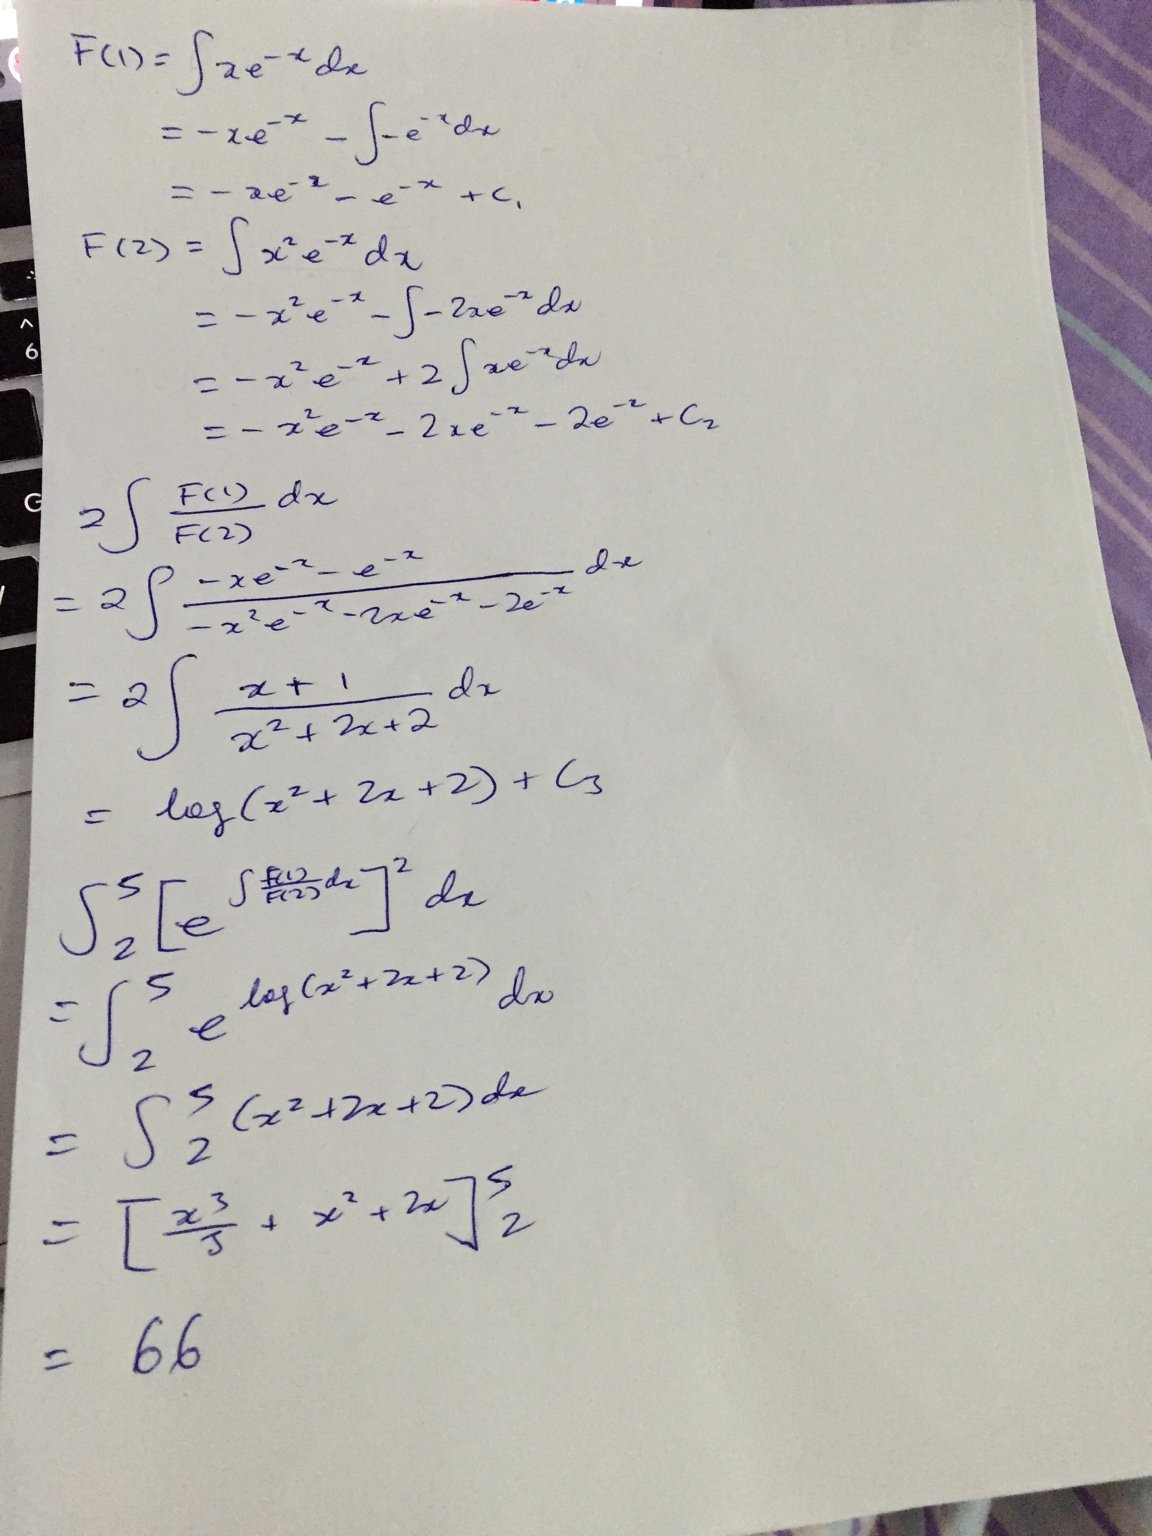 F(1) = ∫xe^{-x}dx
= -xe^{-x} - ∫-e^{-x}dx
= -xe^{-x} - e^{-x} + C₁
F(2) = ∫x²e^{-x}dx
= -x²e^{-x} - ∫-2xe^{-x}dx
= -x²e^{-x} + 2∫xe^{-x}dx
= -x²e^{-x} - 2xe^{-x} - 2e^{-x} + C₂
2∫ F(1)/F(2) dx
= 2∫ (-xe^{-x} - e^{-x})/(-x²e^{-x} - 2xe^{-x} - 2e^{-x}) dx
= 2∫ (x+1)/(x²+2x+2) dx
= log(x²+2x+2) + C₃
∫₂⁵ [e^{∫ F(1)/F(2) dx}]² dx
= ∫₂⁵ e^{log(x²+2x+2)} dx
= ∫₂⁵ (x²+2x+2)dx
= [x³/3 + x² + 2x]₂⁵
= 66
^
6
G